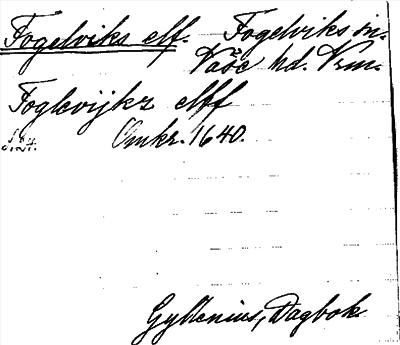 Fogelviks elf. Fogelviks sn.
Väse hd. Vrm.
Foglevijkz elff
Omkr. 1640.
Gyllenius, Dagbok